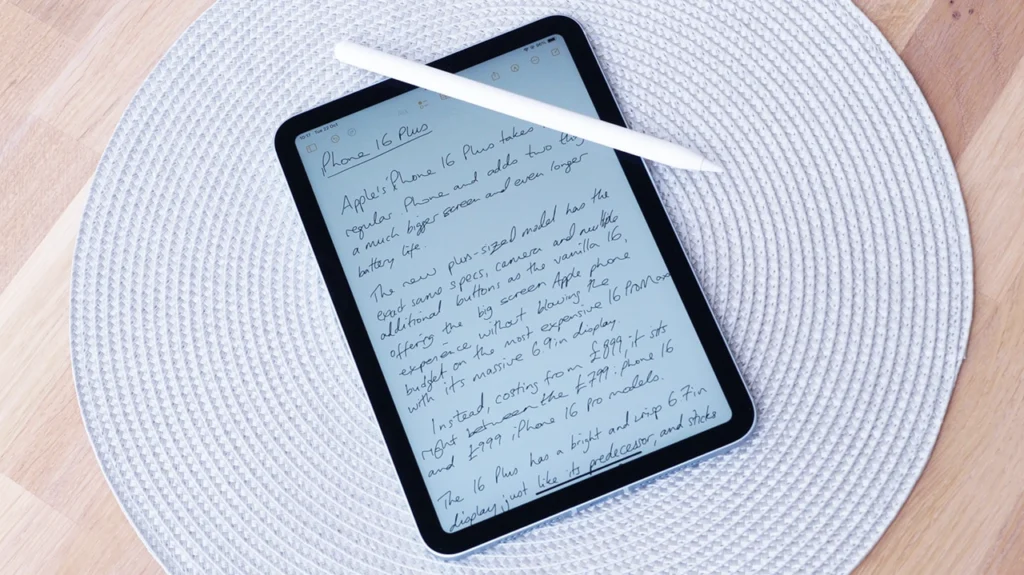 10:17 Tue 22 Oct
iPhone 16 Plus
Apple's iPhone 16 Plus takes
regular iPhone and adds two
a much bigger screen and even longer
battery life.
The new plus-sized model has the
exact same specs, camera and multiple
additional buttons as the vanilla 16,
offering the big screen Apple phone
experience without blowing the
budget on the most expensive 16 Pro Max
with its massive 6.9in display.
Instead, costing from £899, it sits
right between the £799 iPhone 16
and £999 iPhone 16 Pro models.
The 16 Plus has a bright and crisp 6.7in
display, just like its predecessor, and sticks